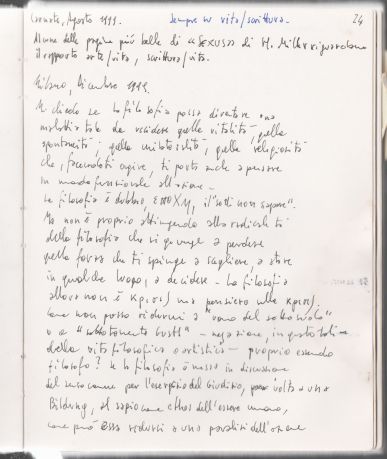 Agosto 1999. Sempre su vita/scrittura. 24
Alcune delle pagine più belle di "SEXUS" di H. Miller riguardano
il rapporto arte/vita, scrittura/vita.
Milano, Dicembre 1999.
Mi chiedo se la filosofia possa diventare una
malattia tale da recidere quella vitalità, quella
spontaneità, quella
che, facendoti agire, ti porta anche a pensare
in modo funzionale all'azione –
La filosofia è dubbio, ΕΠΟΧΗ, il "so di non sapere".
Ma non è proprio attingendo alla radicalità
della filosofia che si giunge a perdere
quella forza che ti spinge a scegliere, a stare
in qualche luogo, a decidere – La filosofia
allora non è κρισις ma pensiero sulla κρισις.
Come non posso ridurmi a "uomo del sottosuolo"
o a – negazione, in quanto tali,
della vita filosofica o artistica – proprio essendo
filosofo? Se la filosofia è messa in discussione
del senso comune per l'esercizio del Giudizio, volto a una
Bildung, al sapio come ethos dell'essere umano,
come può essa ridursi a una paralisi dell'azione